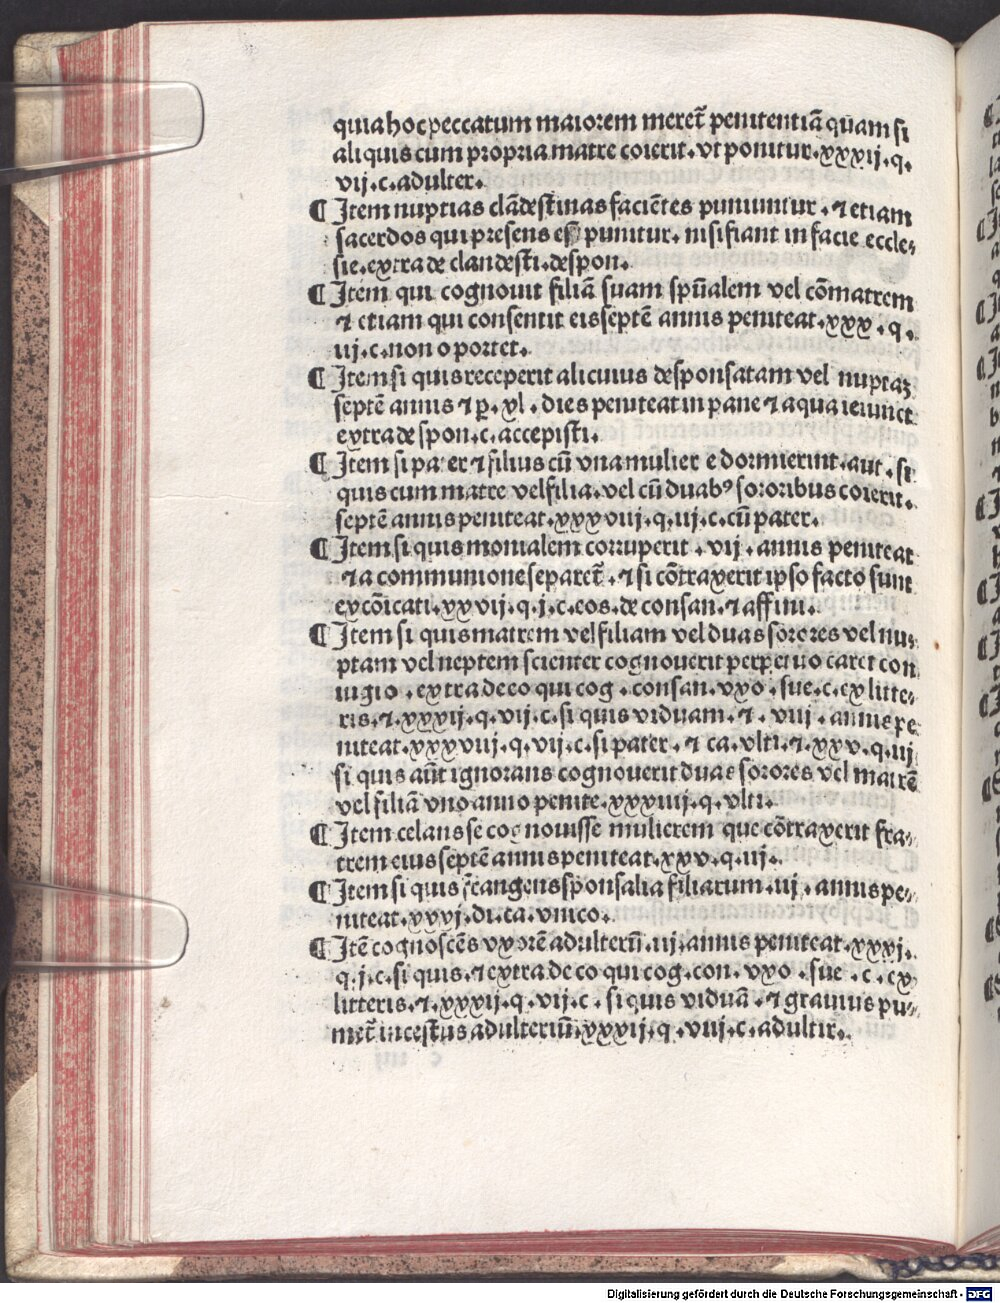 quia hoc peccatum maiorem meret̃ penitentiã quam si
aliquis cum propria matre coierit. vt ponitur. xxxij. q.
vij. c. adulter.
¶ Item nuptias clãdestinas faciẽtes puniuntur. ⁊ etiam
sacerdos qui presens est punitur. nisi fiant in facie eccle⸗
sie. extra de clandesti. despon.
¶ Item qui cognouit filiã suam spũalem vel cõmatrem
⁊ etiam qui consentit eis septẽ annis peniteat. xxx. q.
iij. c. non oportet.
¶ Item si quis receperit alicuius desponsatam vel nuptaꝫ
septẽ annis ⁊ ꝑ. xl. dies peniteat in pane ⁊ aqua ieiunet
extra de spon. c. accepisti.
¶ Item si pater ⁊ filius cũ vna muliere dormierint. aut. si
quis cum matre vel filia. vel cũ duabꝰ sororibus coierit.
septẽ annis peniteat. xxxviij. q. iij. c. cũ pater.
¶ Item si quis monialem corruperit. vij. annis peniteat
⁊ a communione separet̃. ⁊ si cõtraxerit ipso facto sunt
excõicati. xxvij. q. j. c. eos. de consan. ⁊ affini.
¶ Item si quis matrem vel filiam vel duas sorores vel nu⸗
ptam vel neptem scienter cognouerit perpetuo caret con
iugio. extra de eo qui cog. consan. vxo. sue. c. ex litte⸗
ris. ⁊. xxxij. q. vij. c. si quis viduam. ⁊. viij. annis pe
niteat. xxxviij. q. vij. c. si pater. ⁊ ca. vlti. ⁊. xxv. q. iij
si quis aũt ignorans cognouerit duas sorores vel matrẽ
vel filiã vno anno penite. xxxiiij. q. vlti.
¶ Item celans se cognouisse mulierem que cõtraxerit fra⸗
trem eius septẽ annis peniteat. xxv. q. iij.
¶ Item si quis frangens sponsalia filiarum. iij. annis pe⸗
niteat. xxxj. di. ca. vnico.
¶ Itẽ cognoscẽs vxorẽ adulterũ. iij. annis peniteat. xxxj.
q. j. c. si quis. ⁊ extra de eo qui cog. con. vxo. sue. c. ex
litteris. ⁊. xxxij. q. vij. c. si quis viduã. ⁊ grauius pu⸗
niet̃ incestus adulteriũ. xxxij. q. viij. c. adultir.
Digitalisierung gefördert durch die Deutsche Forschungsgemeinschaft - DFG